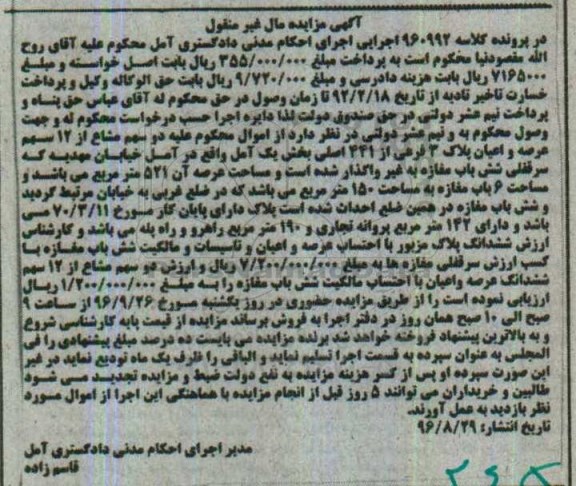 آگهی مزایده مال غیر منقول
در پرونده کلاسه ۹۶۰۹۹۲ اجرایی اجرای احکام مدنی دادگستری آمل محکوم علیه آقای روح
الله مقصودنیا محکوم است به پرداخت مبلغ ۳۵۵/۰۰۰/۰۰۰ ریال بابت اصل خواسته و مبلغ
۷۱۶۵۰۰۰ ریال بابت هزینه دادرسی و مبلغ ۹/۷۲۰/۰۰۰ ریال بابت حق الوکاله وکیل و پرداخت
خسارت تاخیر تادیه از تاریخ ۹۲/۲/۱۸ تا زمان وصول در حق محکوم له آقای عباس حق پناه و
پرداخت نیم عشر دولتی در حق صندوق دولت لذا دایره اجرا حسب درخواست محکوم له و جهت
وصول محکوم به و نیم عشر دولتی در نظر دارد از اموال محکوم علیه دو سهم مشاع از ۱۲ سهم
عرصه و اعیان پلاک ۳ فرعی از ۴۴۱ اصلی بخش یک آمل واقع در آمل خیابان مهدیه که
سرقفلی شش باب مغازه به غیر واگذار شده است و مساحت عرصه آن ۵۲۱ متر مربع می باشد و
مساحت ۶ باب مغازه به مساحت ۱۵۰ متر مربع می باشد که در ضلع غربی به خیابان مرتبط گردید
و شش باب مغازه در همین ضلع احداث شده است پلاک دارای پایان کار مسورخ ۷۰/۳/۱۱ می
باشد و دارای ۱۴۲ متر مربع پروانه تجاری و ۱۹۰ متر مربع راهرو و راه پله می باشد و کارشناس
ارزش ششدانگ پلاک مزبور با احتساب عرصه و اعیان و تاسیسات و مالکیت شش باب مغازه با
کسب ارزش سرقفلی مغازه ها به مبلغ ۷/۲۰۰/۰۰۰/۰۰۰ ریال و ارزش دو سهم مشاع از ۱۲ سهم
ششدانگ عرصه واعیان با احتساب مالکیت شش باب مغازه را به مبلغ ۱/۲۰۰/۰۰۰/۰۰۰ ریال
ارزیابی نموده است را از طریق مزایده حضوری در روز یکشنبه مسورخ ۹۶/۹/۲۶ از ساعت ۹
صبح الی ۱۰ صبح همان روز در دفتر اجرا به فروش برساند مزایده از قیمت پایه کارشناسی شروع
و به بالاترین پیشنهاد فروخته خواهد شد برنده مزایده می بایست ده درصد مبلغ پیشنهادی را فی
المجلس به عنوان سپرده به قسمت اجرا تسلیم نماید و الباقی را ظرف یک ماه تودیع نماید در غیر
این صورت سپرده او پس از کسر هزینه مزایده به نفع دولت ضبط و مزایده تجدید می شود
طالبین و خریداران می توانند ۵ روز قبل از انجام مزایده با هماهنگی این اجرا از اموال مسورد
نظر بازدید به عمل آورند.
تاریخ انتشار: ۹۶/۸/۲۹
مدیر اجرای احکام مدنی دادگستری آمل
قاسم زاده